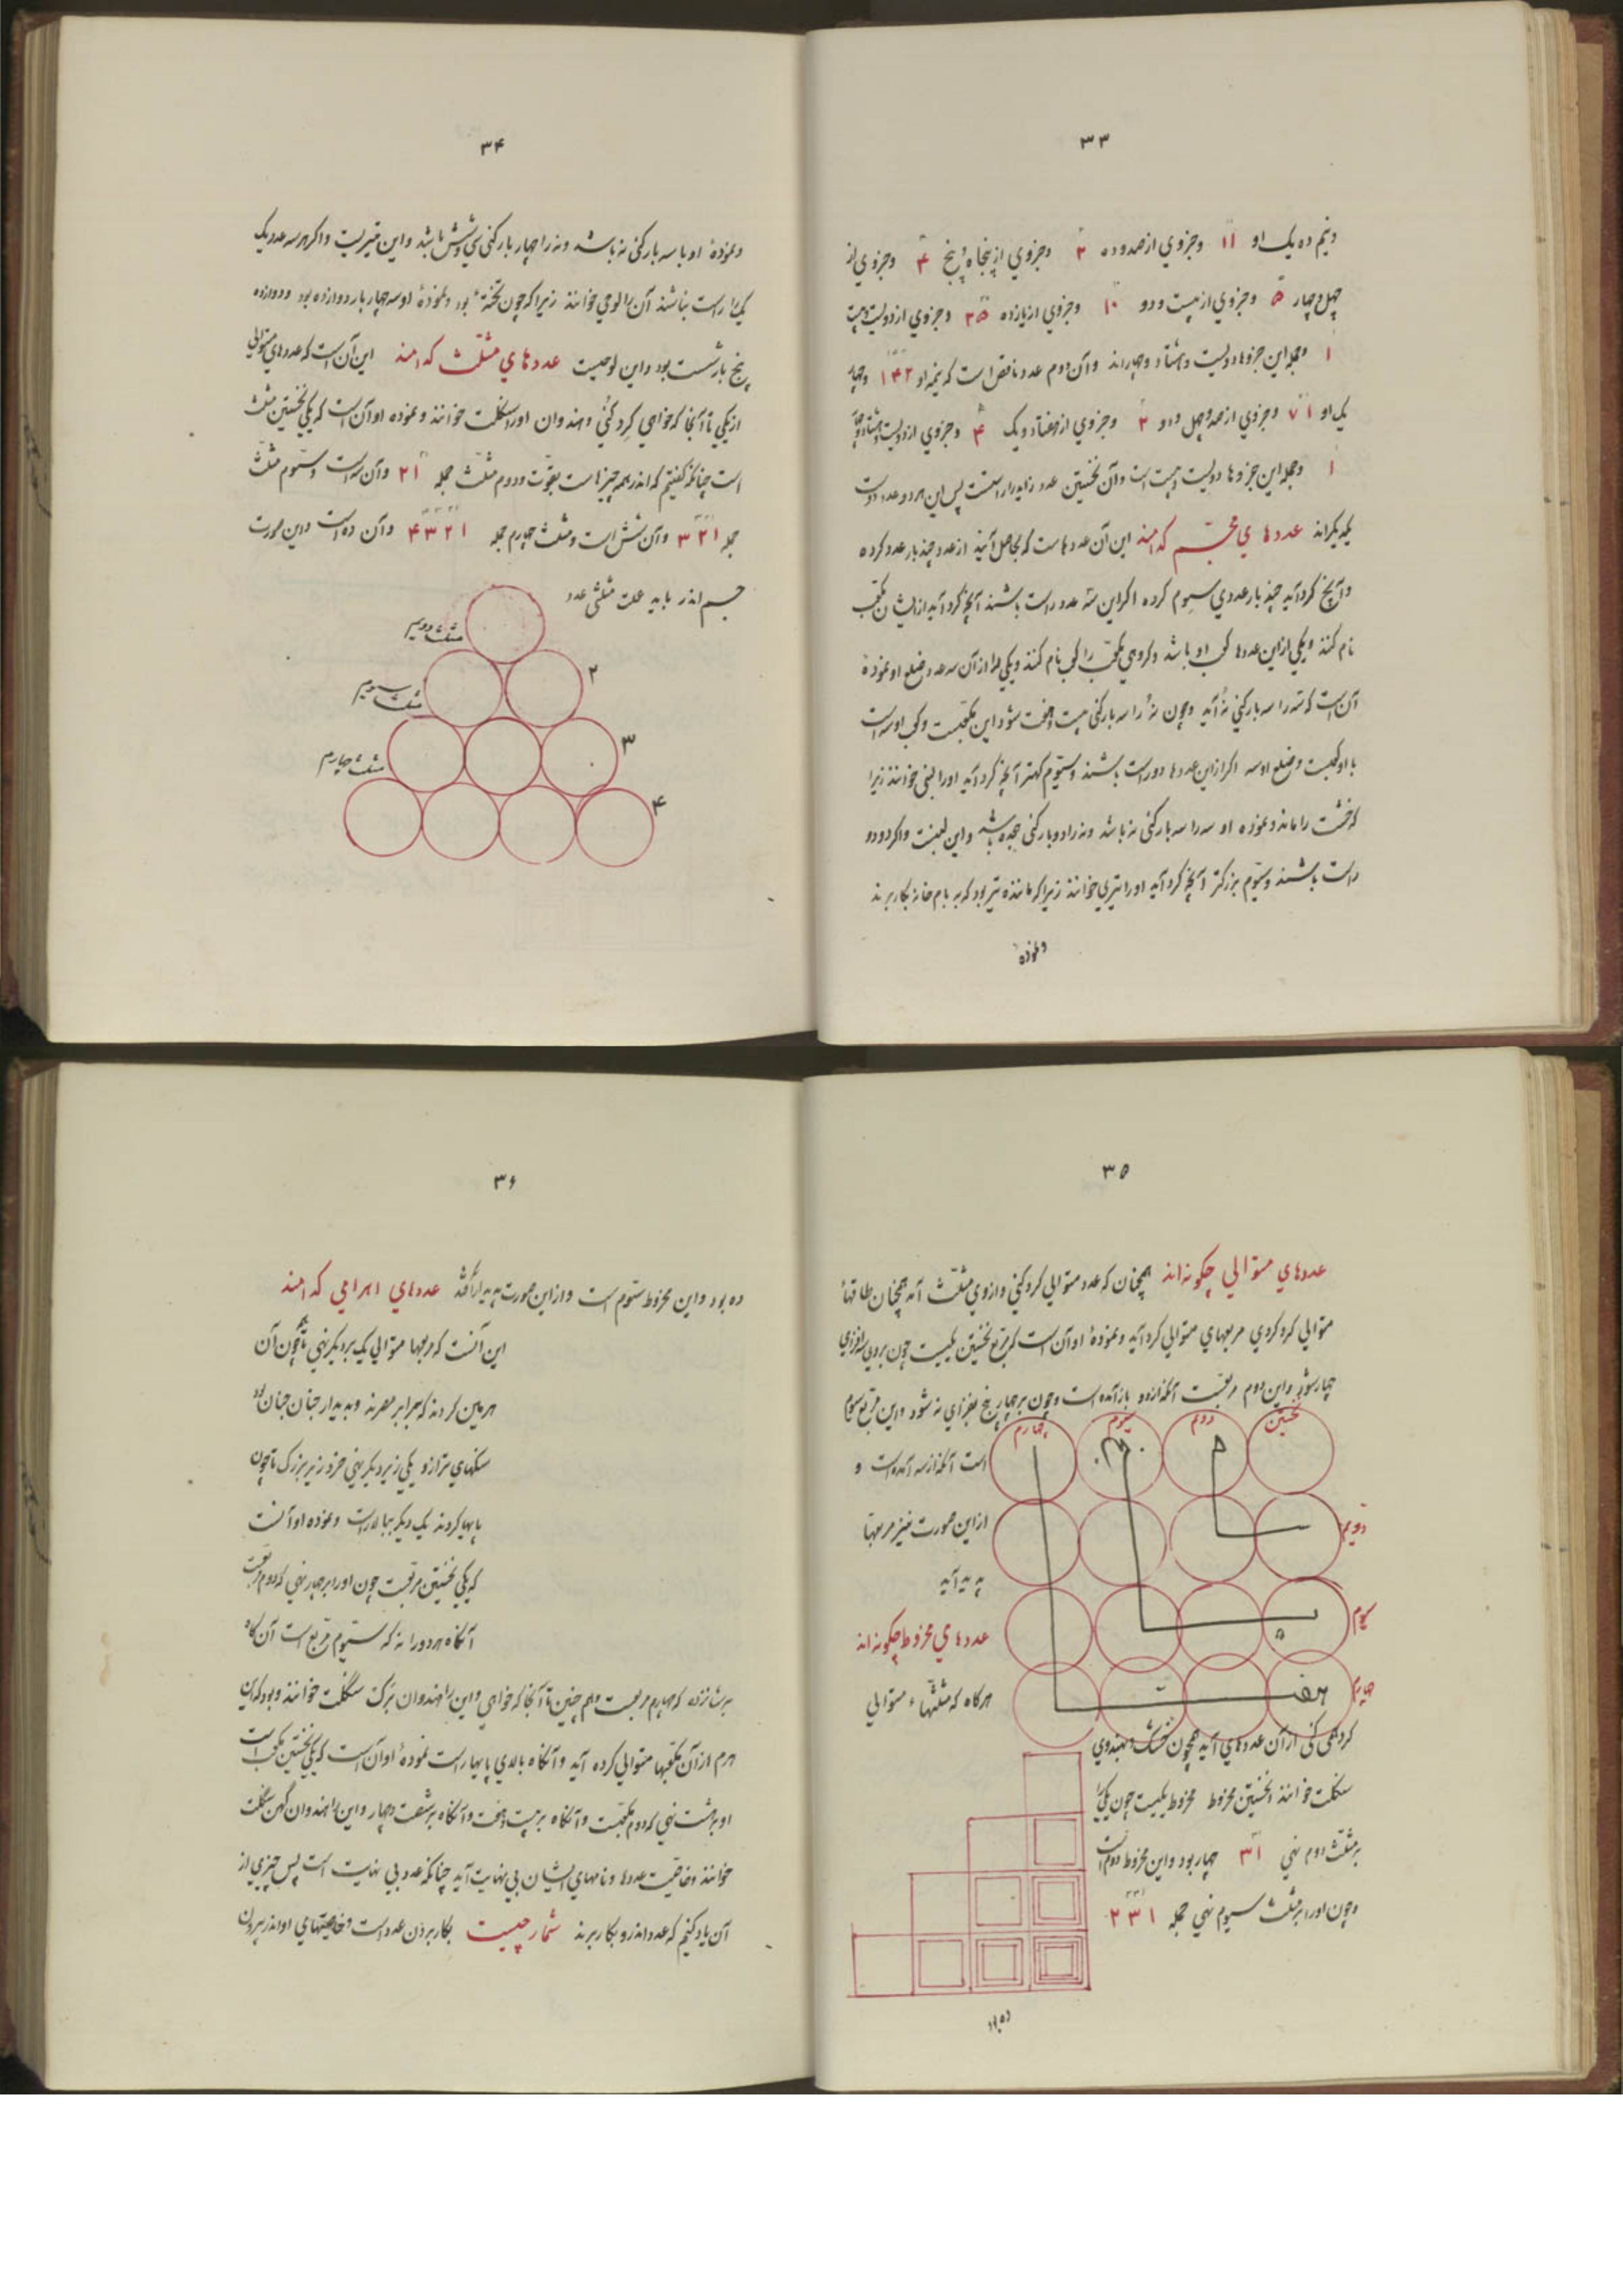 ۳۳
ونیم ده یک او ۱۱ وجزوي از صد وده ۲ وجزوي از پنجاه و پنج ۴ وجزوي از
چهل و چهار ۵ وجزوي از بیست و دو ۱۰ وجزوي از یازده ۲۵ وجزوي از دویست و بیست
۱ وجمله این جزوها دویست و هشتاد و چهاراند وآن دوم عدد ناقص است که نیمه او ۱۴۲ وچهار
یک او ۷۱ وجزوي از صد و چهل و دو ۲ وجزوي از هفتاد و یک ۴ وجزوي از دویست و هشتاد و چهار
۱ وجمله این جزوها دویست و بیست است وآن نخستین عدد زاید راست پس این هر دو عدد دوست
یکدیگراند عددهاي مجسّم کدامند این آن عددهاست که بحاصل آیند از عدد چند بار عدد کرده
وآنچ گرد آید چند بار عددي سیوم کرده اگر این سه عدد راست باشند آنچه گرد آید از ایشان مکعب
نام کنند ویکي از این عددها کعب او باشد وگروهي مکعب را کعب نام کنند ویکي را از آن سه عدد ضلع او نموذهٔ
آن است که سه را سه بار کني نه آید وچون نه را سه بار کني بیست و هفت شود این مکعبست وکعب او سه است
یا او کعبست وضلع او سه اگر از این عددها دو راست باشند وسیّوم کهتر آنچه گرد آید او را لبني خوانند زیرا
که خشت را ماند ونموذه او سه را سه بار کني نه باشد ونه را دو بار کني هجده باشد واین لبنیست واگر دو دو
راست باشند وسیّوم بزرگتر آنچه گرد آید او را تیري خوانند زیرا که ماننده تیر بود که به بام خانه بکار برند
ونموذه
۳۴
ونموذهٔ او با سه بار کني نه باشد ونه را چهار بار کني سي وشش باشد واین تیریست واگر هر سه عدد یک
یک را راست نباشند آن را لوحي خوانند زیرا که چون تختهٔ بود ونموذهٔ او سه چهار بار دوازده بود ودوازده
پنج بار شست بود واین لوحیست عددهاي مثلّث کدامند این آن است که عددهاي متوالي
از یکي تا آنجا که خواهي گرد کُني وهندوان او را سنکلت خوانند ونموده او آن است که یکي نخستین مثلث
است چنانکه گفتیم که اندر همه چیزهاست بقوّت ودوم مثلّث جمله ۲۱ وآن سه است وسیّوم مثلّث
جمله ۳۲۱ وآن شش است ومثلث چهارم جمله ۴۳۲۱ وآن ده است واین صورت
جسم اندر یابد علت مثلثي عدد
مثلث دویم
۲
مثلث سویم
۳
مثلث چهارم
۴
۳۵
عددهاي متوالي چگونه اند همچنان که عدد متوالي گرد کني وازوي مثلّث آمد همچنان طاقهاء
متوالي گرد کردي مربعهاي متوالي گرد آید ونموذهٔ او آن است که مربّع نخستین یکیست چون بروي سه افزاي
چهار شود واین دوم مربعست آنکه از دو باز آمده است وچون بر چهار پنج بفزاي نه شود واین مربّع سیوم
است آنکه از سه آمده است و
از این صورت نیز مربعها
پدید آید
نخستین
دوم
سیوم
چهارم
دویم
سیوم
چهارم
۵
هفت
عددهاي مخروط چگونه اند
هرگاه که مثلّثهاء متوالي
گرد همي کني از آن عددهاي آید همچون خشک وهندوي
سنکلت خوانند نخستین مخروط مخروط یکیست چون یکي را
بر مثلّث دوم نهي ۳۱ چهار بود واین مخروط دوم است
وچون او را بر مثلث سیوم نهي جمله ۱ ۳ ۲
ده بود
۳۶
ده بود واین مخروط سیّوم است واز این صورت پدیدار آمد عددهاي اهرامي کدامند
این آنست که مربعها متوالي یک بر دیگر نهي تا همچون آن
هرمین گردند که برابر مصرند وبدیدار چنان چنان بود
سنگهاي ترازو یکي زبر دیگر نهي خرد زبر بزرگ تا چون
پایها گردند یک دیگر ببالا راست ونموده او آنست
که یکي نخستین مربعست چون او را بر چهار نهي که دوم مربعست
آنگاه هر دو را نه که سیّوم مربّع است آن گاه
بر شانزده که چهارم مربعست وهم چنین تا آنجا که خواهي واین را هندوان برگ سنکلت خوانند وبود که این
هرم از آن مکعبها متوالي کرده آید وآنگاه بالاي پایها راست نمودهٔ او آن است که یکي نخستین مکعب است
او بر هشت نهي که دوم مکعبست وآنگاه بر بیست وهفت وآنگاه بر شصت وچهار واین را هندوان گهن سنکلت
خوانند وخاصیت عددها ونامهاي ایشان بي نهایت آید چنانکه عدد بي نهایت است پس چیزي از
آن یاد کنیم که عدد اندرو بکار برند شمار چیست بکار بردن عدد است وخاصیتهاي او اندر بیرون